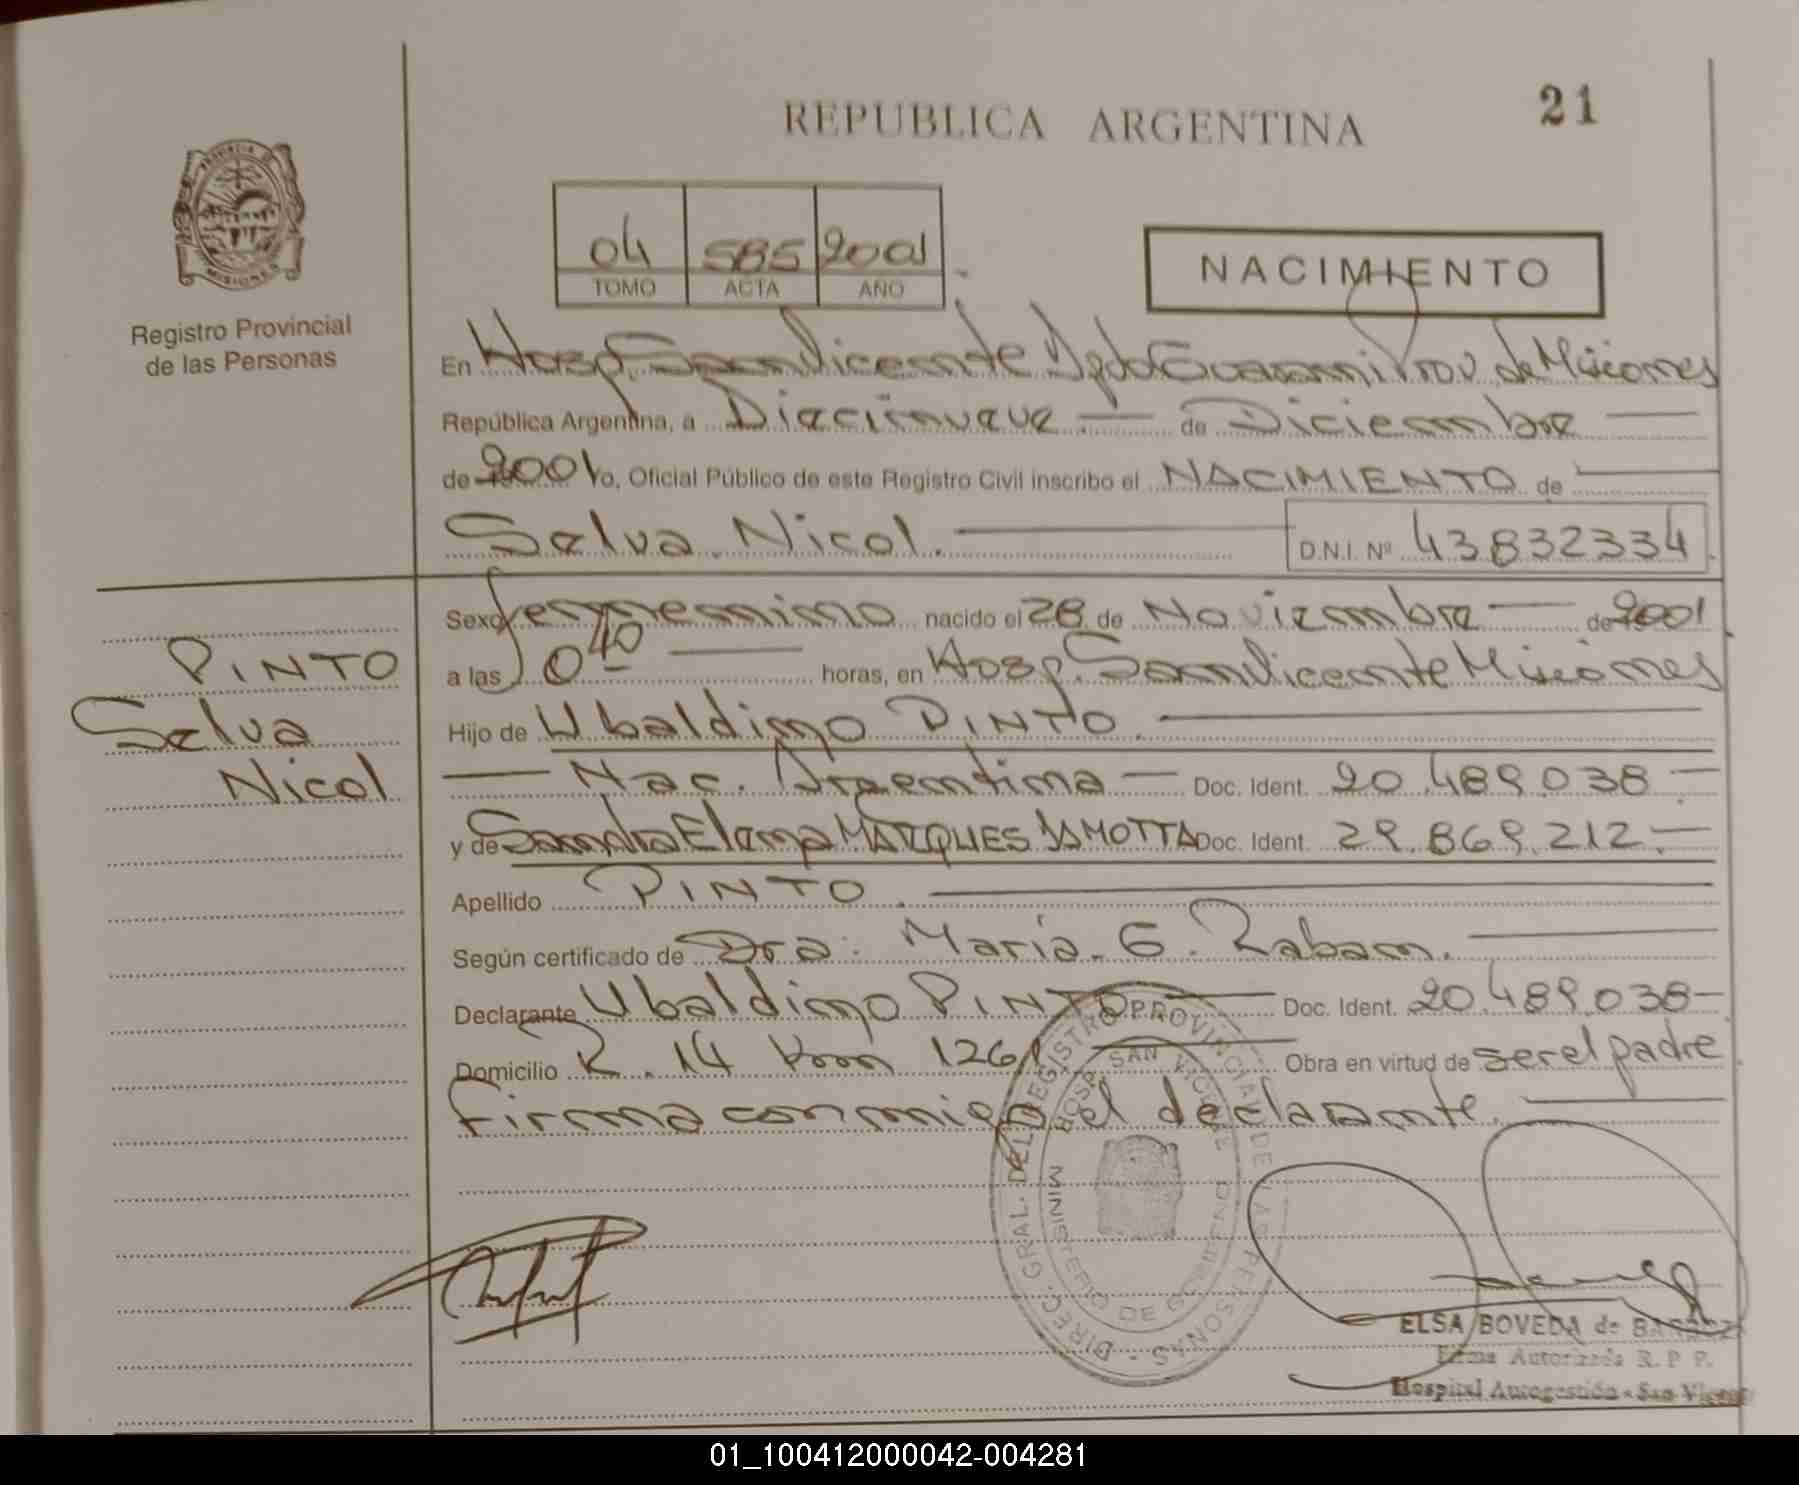 21
REPUBLICA ARGENTINA
PROVINCIA DE
MISIONES
Registro Provincial
de las Personas
04 585 2001
TOMO ACTA AÑO
NACIMIENTO
En Hosp. San Vicente Dpdo Guarani Prov. de Misiones
República Argentina, a Diecinueve de Diciembre
de 2001 Yo, Oficial Público de este Registro Civil inscribo el NACIMIENTO de
Selva Nicol. D.N.I. Nº 43832334
PINTO
Selva
Nicol
Sexo femenino nacido el 28 de Noviembre de 2001
a las 0 40 horas, en Hosp. San Vicente Misiones
Hijo de Ubaldino PINTO.
Nac. Argentina Doc. Ident. 20.489.038
y de Sandra Elena MARQUES DA MOTTA Doc. Ident. 29.869.212.
Apellido PINTO.
Según certificado de Dra. Maria. G. Raban.
Declarante Ubaldino PINTO Doc. Ident. 20.489.038
Domicilio R. 14 Km 126 Obra en virtud de ser el padre
Firma conmigo el declarante.
DIREC. GRAL. DEL REGISTRO PROVINCIAL DE LAS PERSONAS
HOSP. SAN VICENTE
MINISTERIO DE GOBIERNO
ELSA BOVEDA de
Firma Autorizada R. P. P.
Hospital Autogestión - San Vicente
01_100412000042-004281